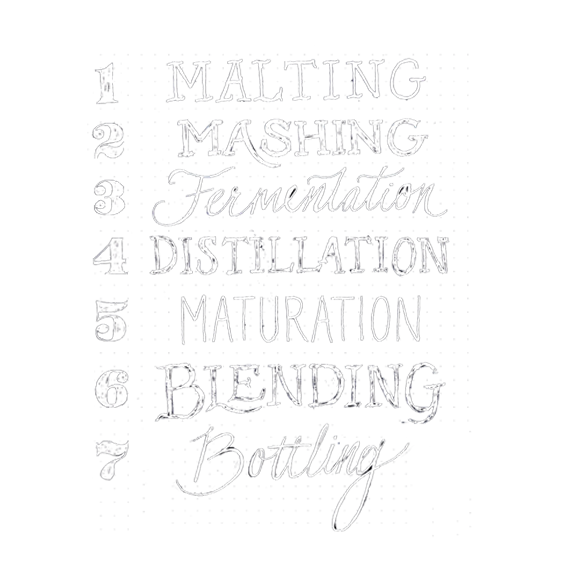 1 MALTING
2 MASHING
3 Fermentation
4 DISTILLATION
5 MATURATION
6 BLENDING
7 Bottling